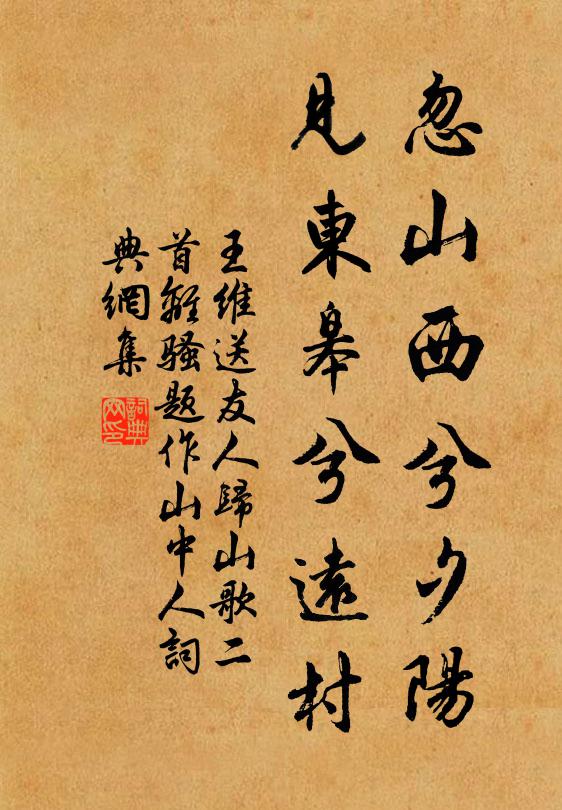 忽山西兮夕陽
見東皋兮遠村
王維送友人歸山歌二
首離騷題作山中人詞
典網集
詞典網印